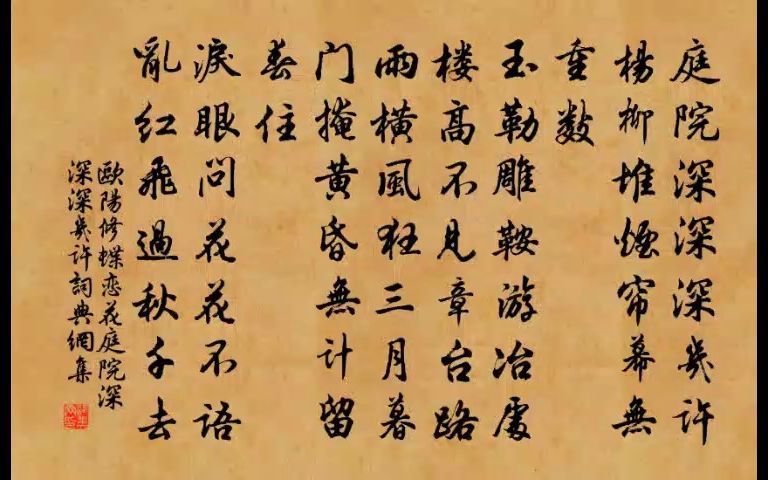 庭院深深深幾許
楊柳堆煙帘幕無
重數
玉勒雕鞍游冶處
楼高不見章台路
雨橫風狂三月暮
门掩黄昏無計留
春住
淚眼问花花不語
亂红飛過秋千去
歐陽修蝶恋花庭院深
深深幾許詞典網集